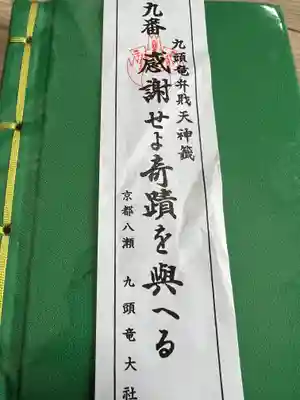 九頭竜弁財天神籤
九番 感謝せよ奇蹟を與へる
京都八瀬 九頭竜大社